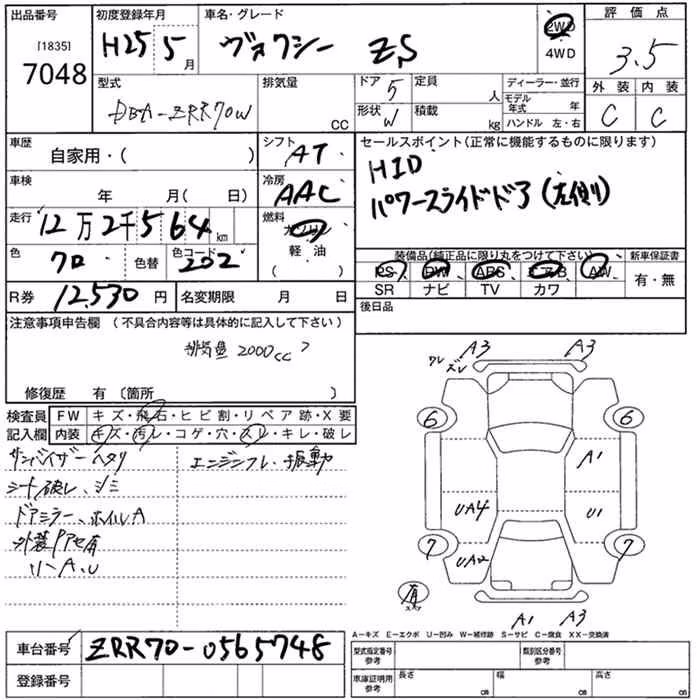 出品番号
[1835]
7048
初度登録年月
H25 5 月
車名・グレード
ヴォクシー ZS
2WD
4WD
評価点
3.5
外装 内装
C C
型式
DBA-ZRR70W
排気量
CC
ドア 5
形状 W
定員 人
積載 kg
ディーラー・並行
モデル年式 年
ハンドル 左・右
車歴
自家用・( )
シフト
AT
セールスポイント(正常に機能するものに限ります)
HID
パワースライドドア(左側)
車検
年 月( 日)
冷房
AAC
走行
12万2千564km
燃料
ガソリン
軽油
( )
色
クロ
色替
色コード
202
装備品(純正品に限り丸をつけて下さい)
PS PW ABS エアB AW
SR ナビ TV カワ
新車保証書
有・無
R券
12,530円
名変期限 月 日
後日品
注意事項申告欄 (不具合内容等は具体的に記入して下さい)
排気量 2000cc
修復歴 有〔箇所 〕
検査員
記入欄
FW キズ・飛石・ヒビ割・リペア跡・X要
内装 キズ・汚レ・コゲ・穴・スレ・キレ・破レ
サンバイザーヘタリ
エンジンフレ、振動
シート破レ、シミ
ドアミラー、ホイルA
外装
リヘA、U
ワレ
ズレ
A3
A3
6
6
A1
UA4
U1
7
7
UA2
有
A1
A3
A-キズ E-エクボ U-凹み W-補修跡 S-サビ C-腐食 XX-交換済
車台番号
ZRR70-0565748
登録番号
型式指定番号
参考
類別区分番号
参考
車庫証明用
参考
長さ cm
幅 cm
高さ cm